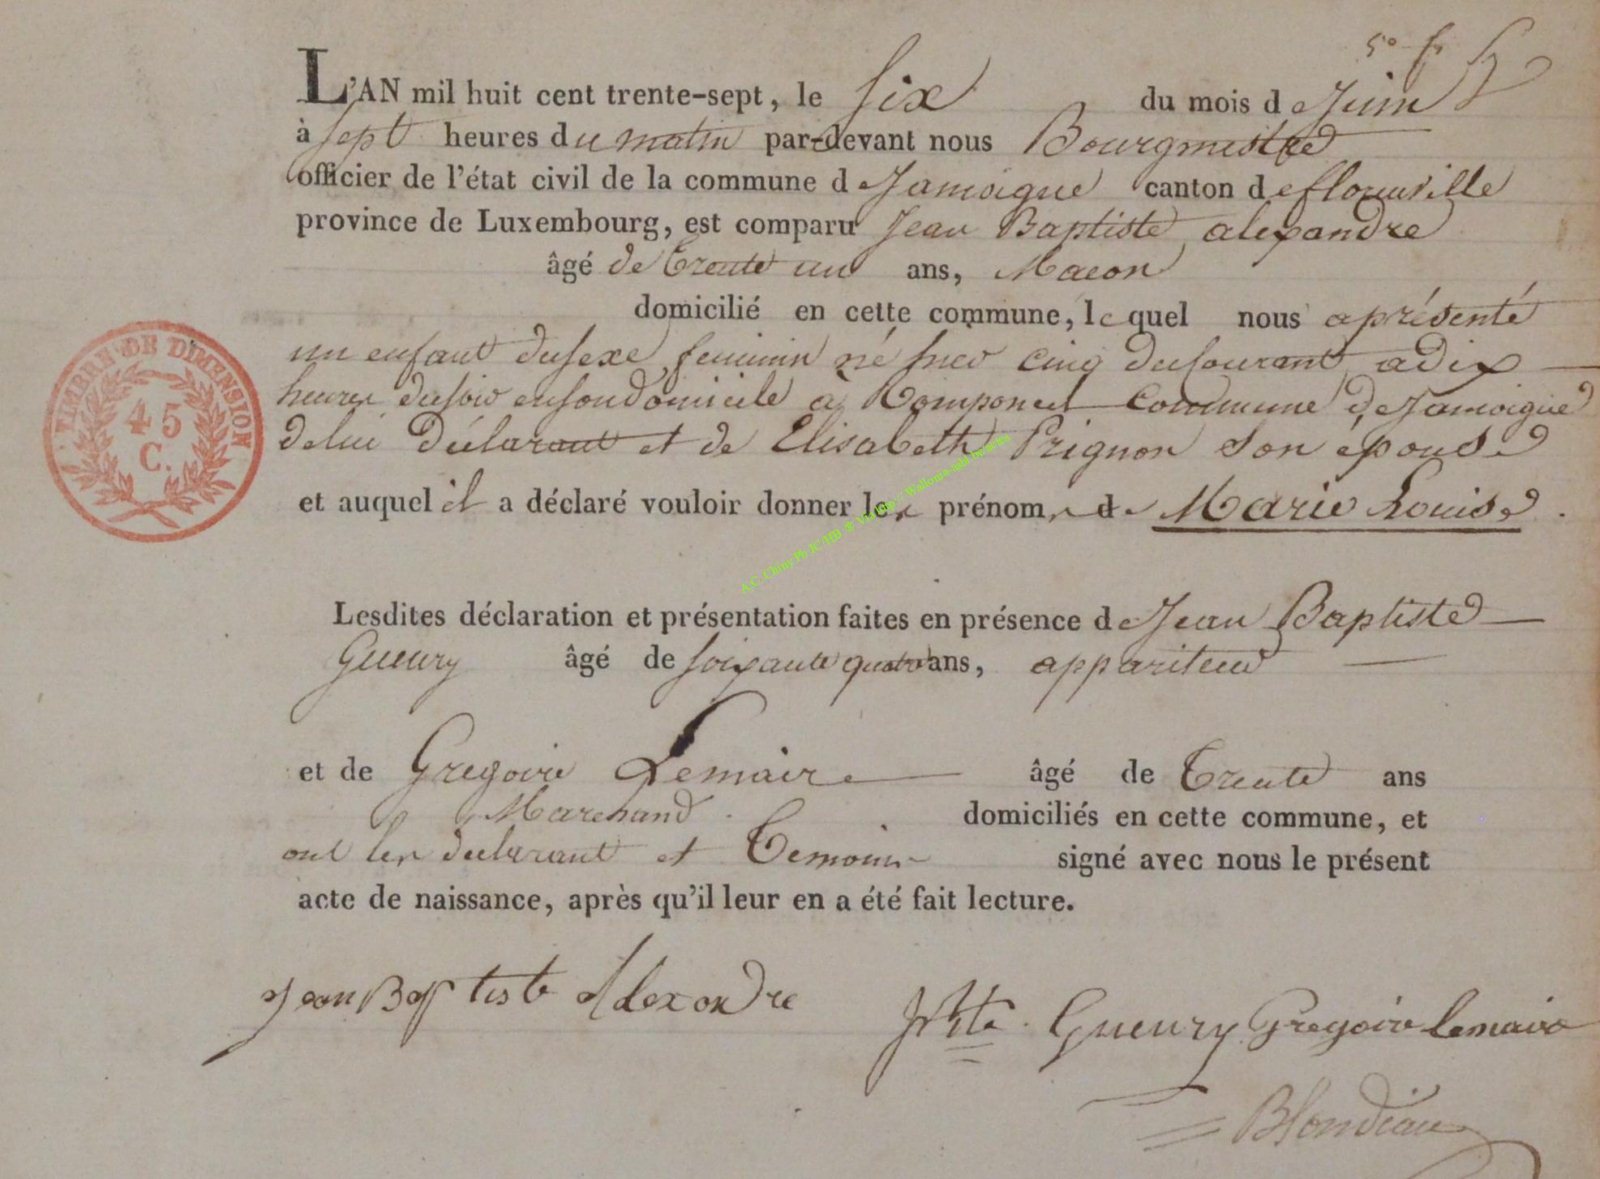 L'AN mil huit cent trente-sept, le six du mois de Juin
à sept heures du matin par-devant nous Bourgmestre
officier de l'état civil de la commune de Jamoigne canton de florenville
province de Luxembourg, est comparu Jean Baptiste alexandre
âgé de trente un ans, Macon
domicilié en cette commune, lequel nous a présenté
un enfant du sexe feminin né hier cinq du courant a dix
heures du soir en son domicile à commune de Jamoigne
de lui déclarant et de Elisabeth Prignon son épouse
et auquel il a déclaré vouloir donner les prénoms de Marie Louise.
Lesdites déclaration et présentation faites en présence de Jean Baptiste
Gueury âgé de soixante quatre ans, appariteur
et de Gregoire Lemaire âgé de trente ans
Marchand. domiciliés en cette commune, et
ont les declarant et Temoins signé avec nous le présent
acte de naissance, après qu'il leur en a été fait lecture.
Jean Baptiste Alexandre
Gueury Gregoire Lemaire
Blondiau
TIMBRE DE DIMENSION
45
C.